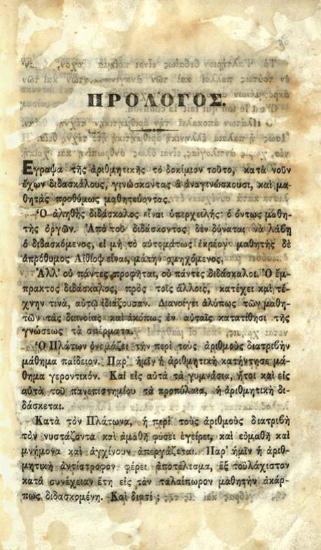 ΠΡΟΛΟΓΟΣ.
Εγραψα τῆς ἀριθμητικῆς τὸ δοκίμιον τοῦτο, κατὰ νοῦν
ἔχων διδασκάλους, γινώσκοντας ἃ ἀναγινώσκουσι, καὶ μα-
θητὰς προθύμως μαθητεύοντας.
Ὁ ἀληθὴς διδάσκαλος εἶναι ὑπερχειλής· ὁ ὄντως μαθη-
τὴς ὀργῶν. Ἀπὸ τοῦ διδάσκοντος δὲν δύναται νὰ λάβῃ
ὁ διδασκόμενος, εἰ μὴ τὸ αὐτομάτως ἐκρέον· μαθητὴς δὲ
ἀπρόθυμος Αἰθίοψ εἶναι, μάτην σμηχόμενος.
Ἀλλ' οὐ πάντες προφῆται, οὐ πάντες διδάσκαλοι. Ὁ ἔμ-
πρακτος διδάσκαλος, πρὸς τοῖς ἄλλοις, κατέχει καὶ τέ-
χνην τινὰ, αὐτῷ ἰδιάζουσαν. Διανοίγει ἀλύπως τῶν μαθη-
τῶν τὰς διανοίας καὶ ἀκόπως ἐν αὐταῖς κατατίθησι τῆς
γνώσεως τὰ σπέρματα.
Ὁ Πλάτων ὀνομάζει τὴν περὶ τοὺς ἀριθμοὺς διατριβὴν
μάθημα παίδειον. Παρ' ἡμῖν ἡ ἀριθμητικὴ κατήντησε μά-
θημα γεροντικόν. Καὶ εἰς αὐτὰ τὰ γυμνάσια, ἤτοι καὶ εἰς
αὐτὰ τοῦ πανεπιστημίου τὰ προπύλαια, ἡ ἀριθμητικὴ δι-
δάσκεται.
Κατὰ τὸν Πλάτωνα, ἡ περὶ τοὺς ἀριθμοὺς διατριβὴ
τὸν νυστάζοντα καὶ ἀμαθῆ φύσει ἐγείρει, καὶ εὐμαθῆ καὶ
μνήμονα καὶ ἀγχίνουν ἀπεργάζεται. Παρ' ἡμῖν ἡ ἀρι-
θμητικὴ ἀντίστροφον φέρει ἀποτέλεσμα, ἐξ τοὐλάχιστον
κατὰ συνέχειαν ἔτη εἰς τὸν ταλαίπωρον μαθητὴν ἀκάρ-
πως διδασκομένη. Καὶ διατί;